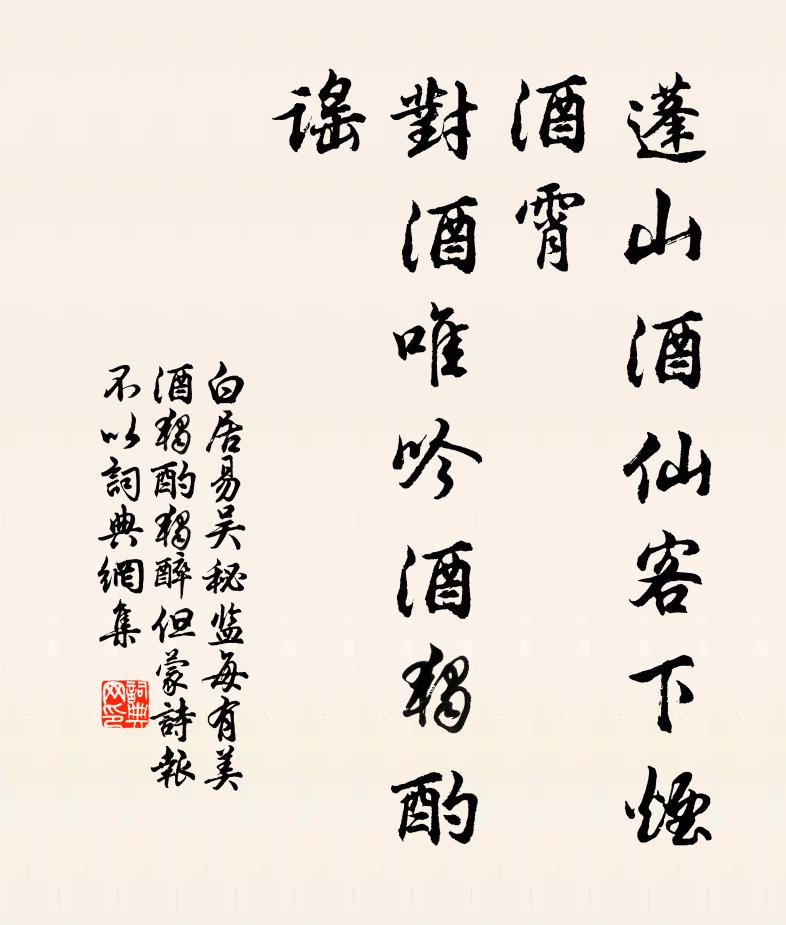 蓬山酒仙客下煙
酒霄
對酒唯吟酒獨酌
謠
白居易吴秘监每有美
酒獨酌獨醉但蒙詩報
不以詞典網集
詞典网印